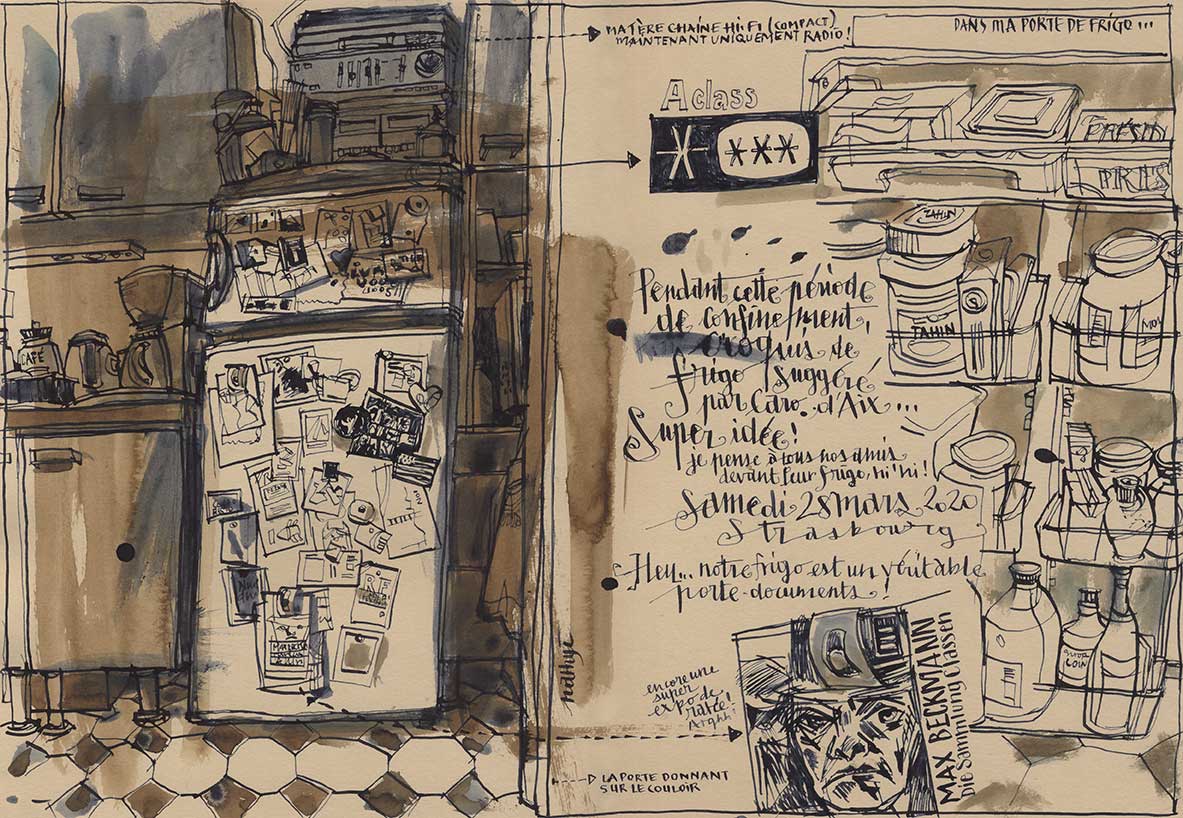 MA 1ÈRE CHAÎNE HI-FI (COMPACT)
MAINTENANT UNIQUEMENT RADIO!
DANS MA PORTE DE FRIGO...
A class
TAHIN
TAHIN
CAFÉ
Pendant cette période
de confinement,
croquis de
frigo suggéré
par Caro. d'Aix...
Super idée!
je pense à tous nos amis
devant leur frigo, hi'hi!
Samedi 28 mars 2020
Strasbourg
Heu... notre frigo est un véritable
porte-documents!
encore une
super
expo de
ratée!
Arghh!
MAX BECKMANN
Die Sammlung Classen
LA PORTE DONNANT
SUR LE COULOIR